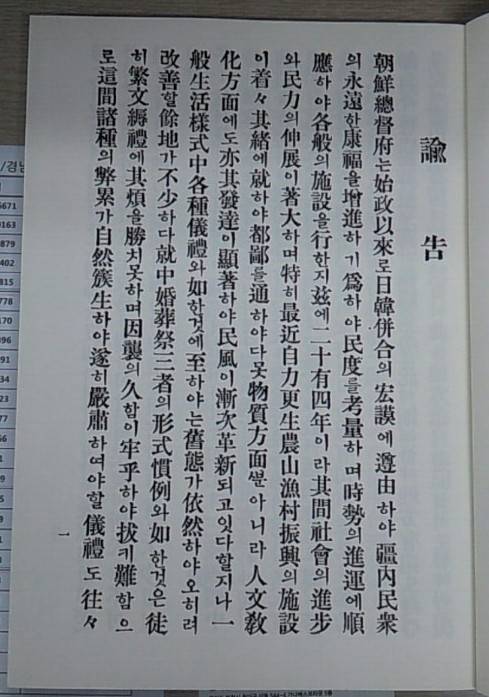 諭告
朝鮮總督府는始政以來로日韓併合의宏謨에遵由하야疆內民衆
의永遠한康福을增進하기爲하야民度를考量하며時勢의進運에順
應하야各般의施設을行한지玆에二十有四年이라其間社會의進步
와民力의伸展이著大하며特히最近自力更生農山漁村振興의施設
이着々其緖에就하야都鄙를通하야다못物質方面뿐아니라人文敎
化方面에도亦其發達이顯著하야民風이漸次革新되고잇다할지나一
般生活樣式中各種儀禮와如한것에至하야는舊態가依然하야오히려
改善할餘地가不少하다就中婚葬祭三者의形式慣例와如한것은徒
히繁文縟禮에其煩을勝치못하며因襲의久함이牢乎하야拔키難함으
로這間諸種의弊累가自然簇生하야遂히嚴肅하여야할儀禮도往々
一
/경남
5671
0163
879
402
815
778
170
396
91
34
23
77
56